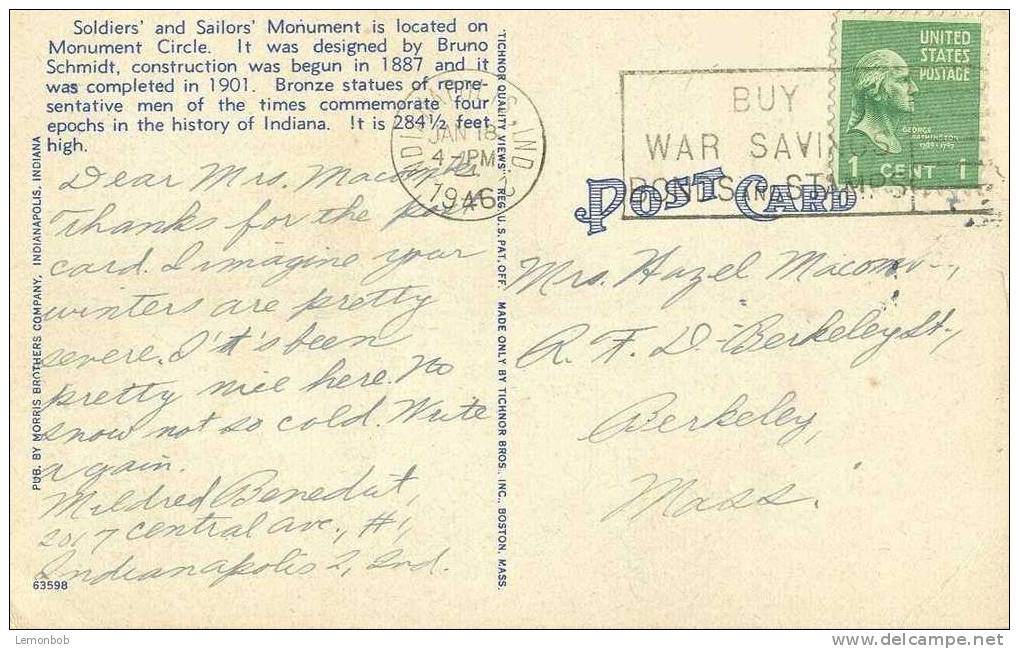 Soldiers' and Sailors' Monument is located on
Monument Circle. It was designed by Bruno
Schmidt, construction was begun in 1887 and it
was completed in 1901. Bronze statues of repre-
sentative men of the times commemorate four
epochs in the history of Indiana. It is 284½ feet
high.
Dear Mrs. Macomber
Thanks for the post
card. I imagine your
winters are pretty
severe. It's been
pretty nice here. No
snow not so cold. Write
again.
Mildred Benedict,
2017 Central Ave., #1,
Indianapolis 2, Ind.
63598
PUB. BY MORRIS BROTHERS COMPANY, INDIANAPOLIS, INDIANA
"TICHNOR QUALITY VIEWS" REG. U. S. PAT. OFF. MADE ONLY BY TICHNOR BROS., INC., BOSTON, MASS.
INDIANAPOLIS, IND. 2
JAN 18
4-PM
1946
BUY
WAR SAVINGS
BONDS AND STAMPS
UNITED
STATES
POSTAGE
GEORGE
WASHINGTON
1789-1797
1 CENT 1
POST CARD
Mrs. Hazel Macomber,
R. F. D. - Berkeley St.,
Berkeley,
Mass.
Lemonbob
www.delcampe.net